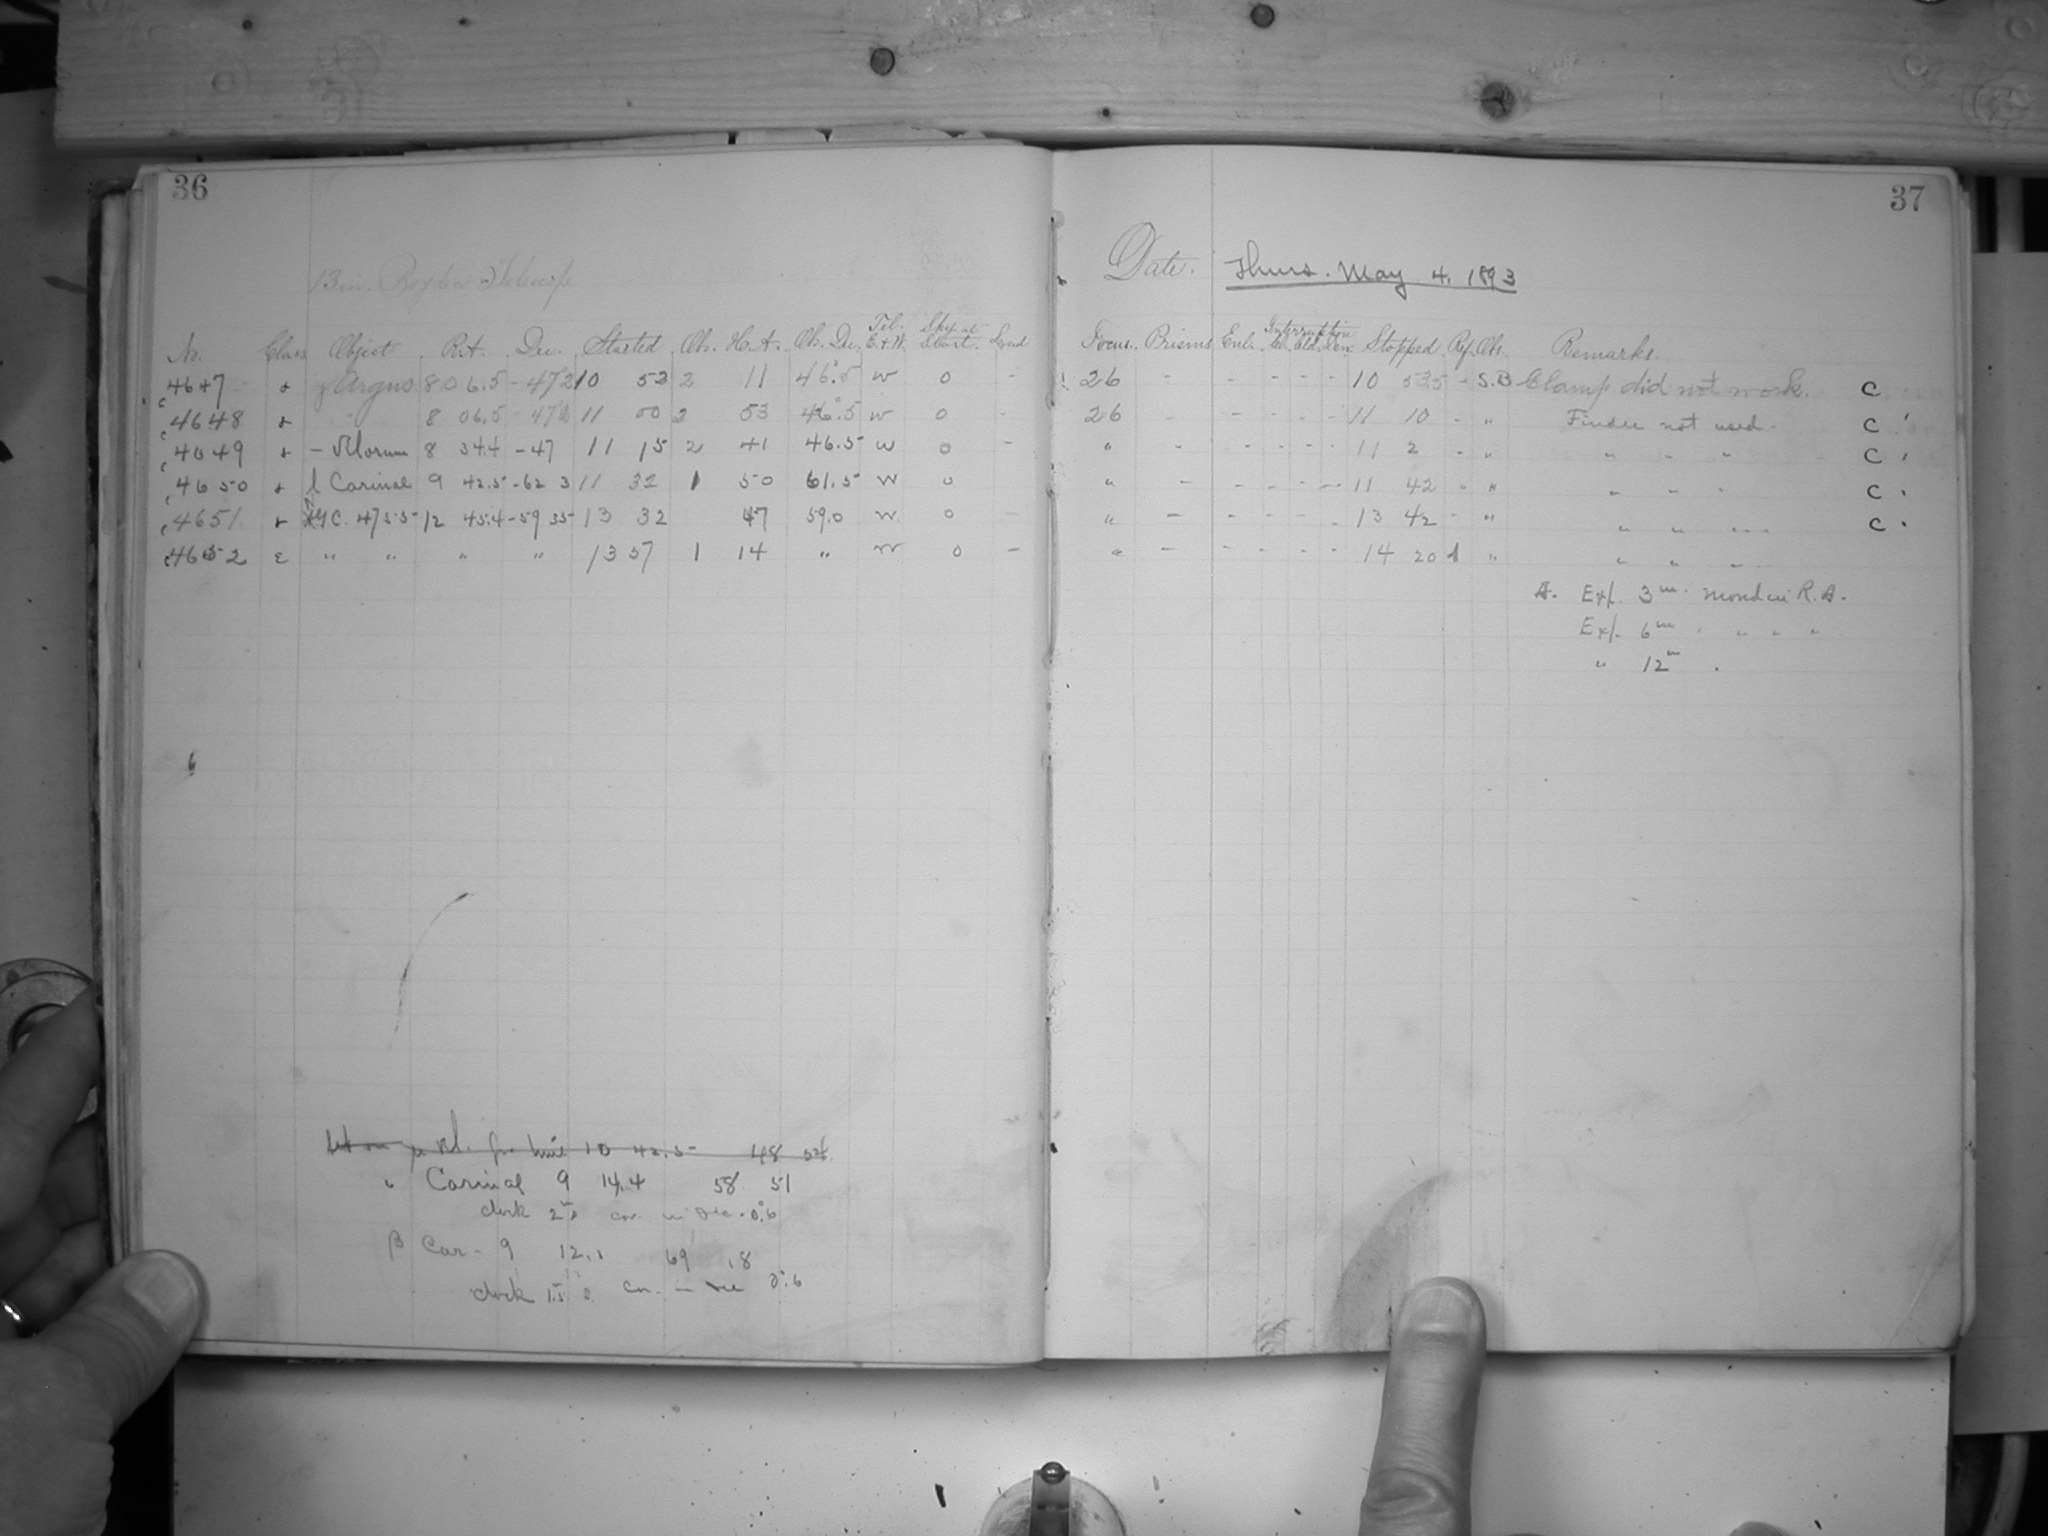 36
13 in. Boyden Telescope
No. Class Object R.A. Dec. Started Obs. H.A. Ob. Dec. Tel. E.+W. Sky at Start. Lund
4647 γ Argus 8 06.5 - 47 2 10 52 2 11 46.5 W 0 -
4648 " 8 06.5 - 47 2 11 00 2 53 46.5 W 0 -
4649 - Velorum 8 34.4 - 47 11 15 2 41 46.5 W 0 -
4650 l Carinae 9 42.5 - 62 3 11 32 1 50 61.5 W 0
4651 G.C. 4755 - 12 45.4 - 59 35 13 32 47 59.0 W 0 -
4652 ε " " " " 13 57 1 14 " W 0 -
10 42.5 48
" Carinae 9 14.4 58 51
clock 2 cor. in Dec. 0.6
β Car - 9 12.1 69 18
clock 1.5 cor. in Dec 0.6
37
Date. Thurs. May 4, 1893
Focus. Prisms Enl. Interruption Cl. Cld. Den. Stopped Rf. Obs. Remarks.
26 - - - - - 10 53.5 - S.B Clamp did not work. C
26 - - - - - 11 10 - " Finder not used. C
" - - - - - 11 2 - " " " " C
" - - - - - 11 42 - " " " " C
" - - - - - 13 42 - " " " " C
" - - - - - 14 20 A " " " "
A. Exp. 3m. Moved in R.A.
Exp. 6m " " " "
" 12m .